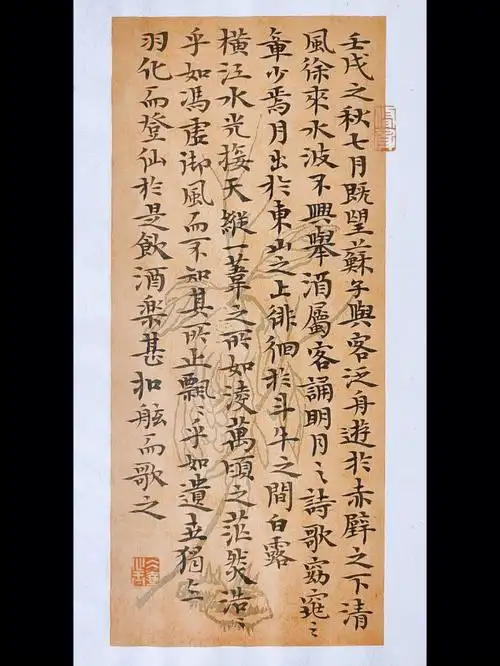 壬戌之秋七月既望蘇子與客泛舟遊於赤壁之下清
風徐來水波不興舉酒屬客誦明月之詩歌窈窕之
章少焉月出於東山之上徘徊於斗牛之間白露
橫江水光接天縱一葦之所如淩萬頃之茫然浩〻
乎如馮虛御風而不知其所止飄〻乎如遺世獨立
羽化而登仙於是飲酒楽甚扣舷而歌之